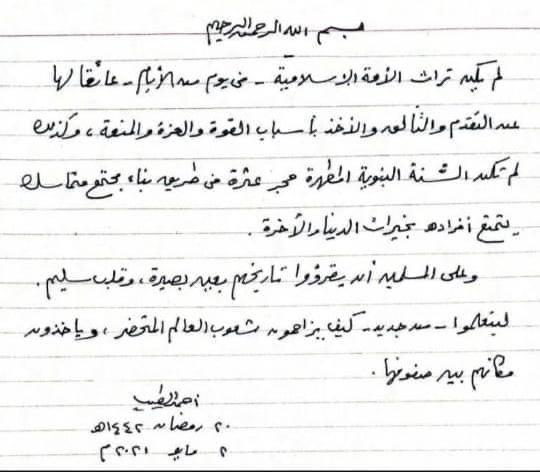 بسم الله الرحمن الرحيم
لم يكن تراث الأمة الإسلامية - في يوم من الأيام - عائقًا لها
عن التقدم والتألق والأخذ بأسباب القوة والعزة والمنعة، وكذلك
لم تكن السُّنة النبوية المطهرة حجر عثرة في طريق بناء مجتمع متماسك
يتمتع أفراده بخيرات الدنيا والآخرة.
وعلى المسلمين أن يقرؤوا تاريخهم بعين بصيرة، وقلب سليم.
ليتعلموا - من جديد - كيف يزاحمون شعوب العالم المتحضر، ويأخذون
مكانهم بين صفوفها.
أحمد الطيب
٢٠ رمضان ١٤٤٢هـ
٢ مايو ٢٠٢١م